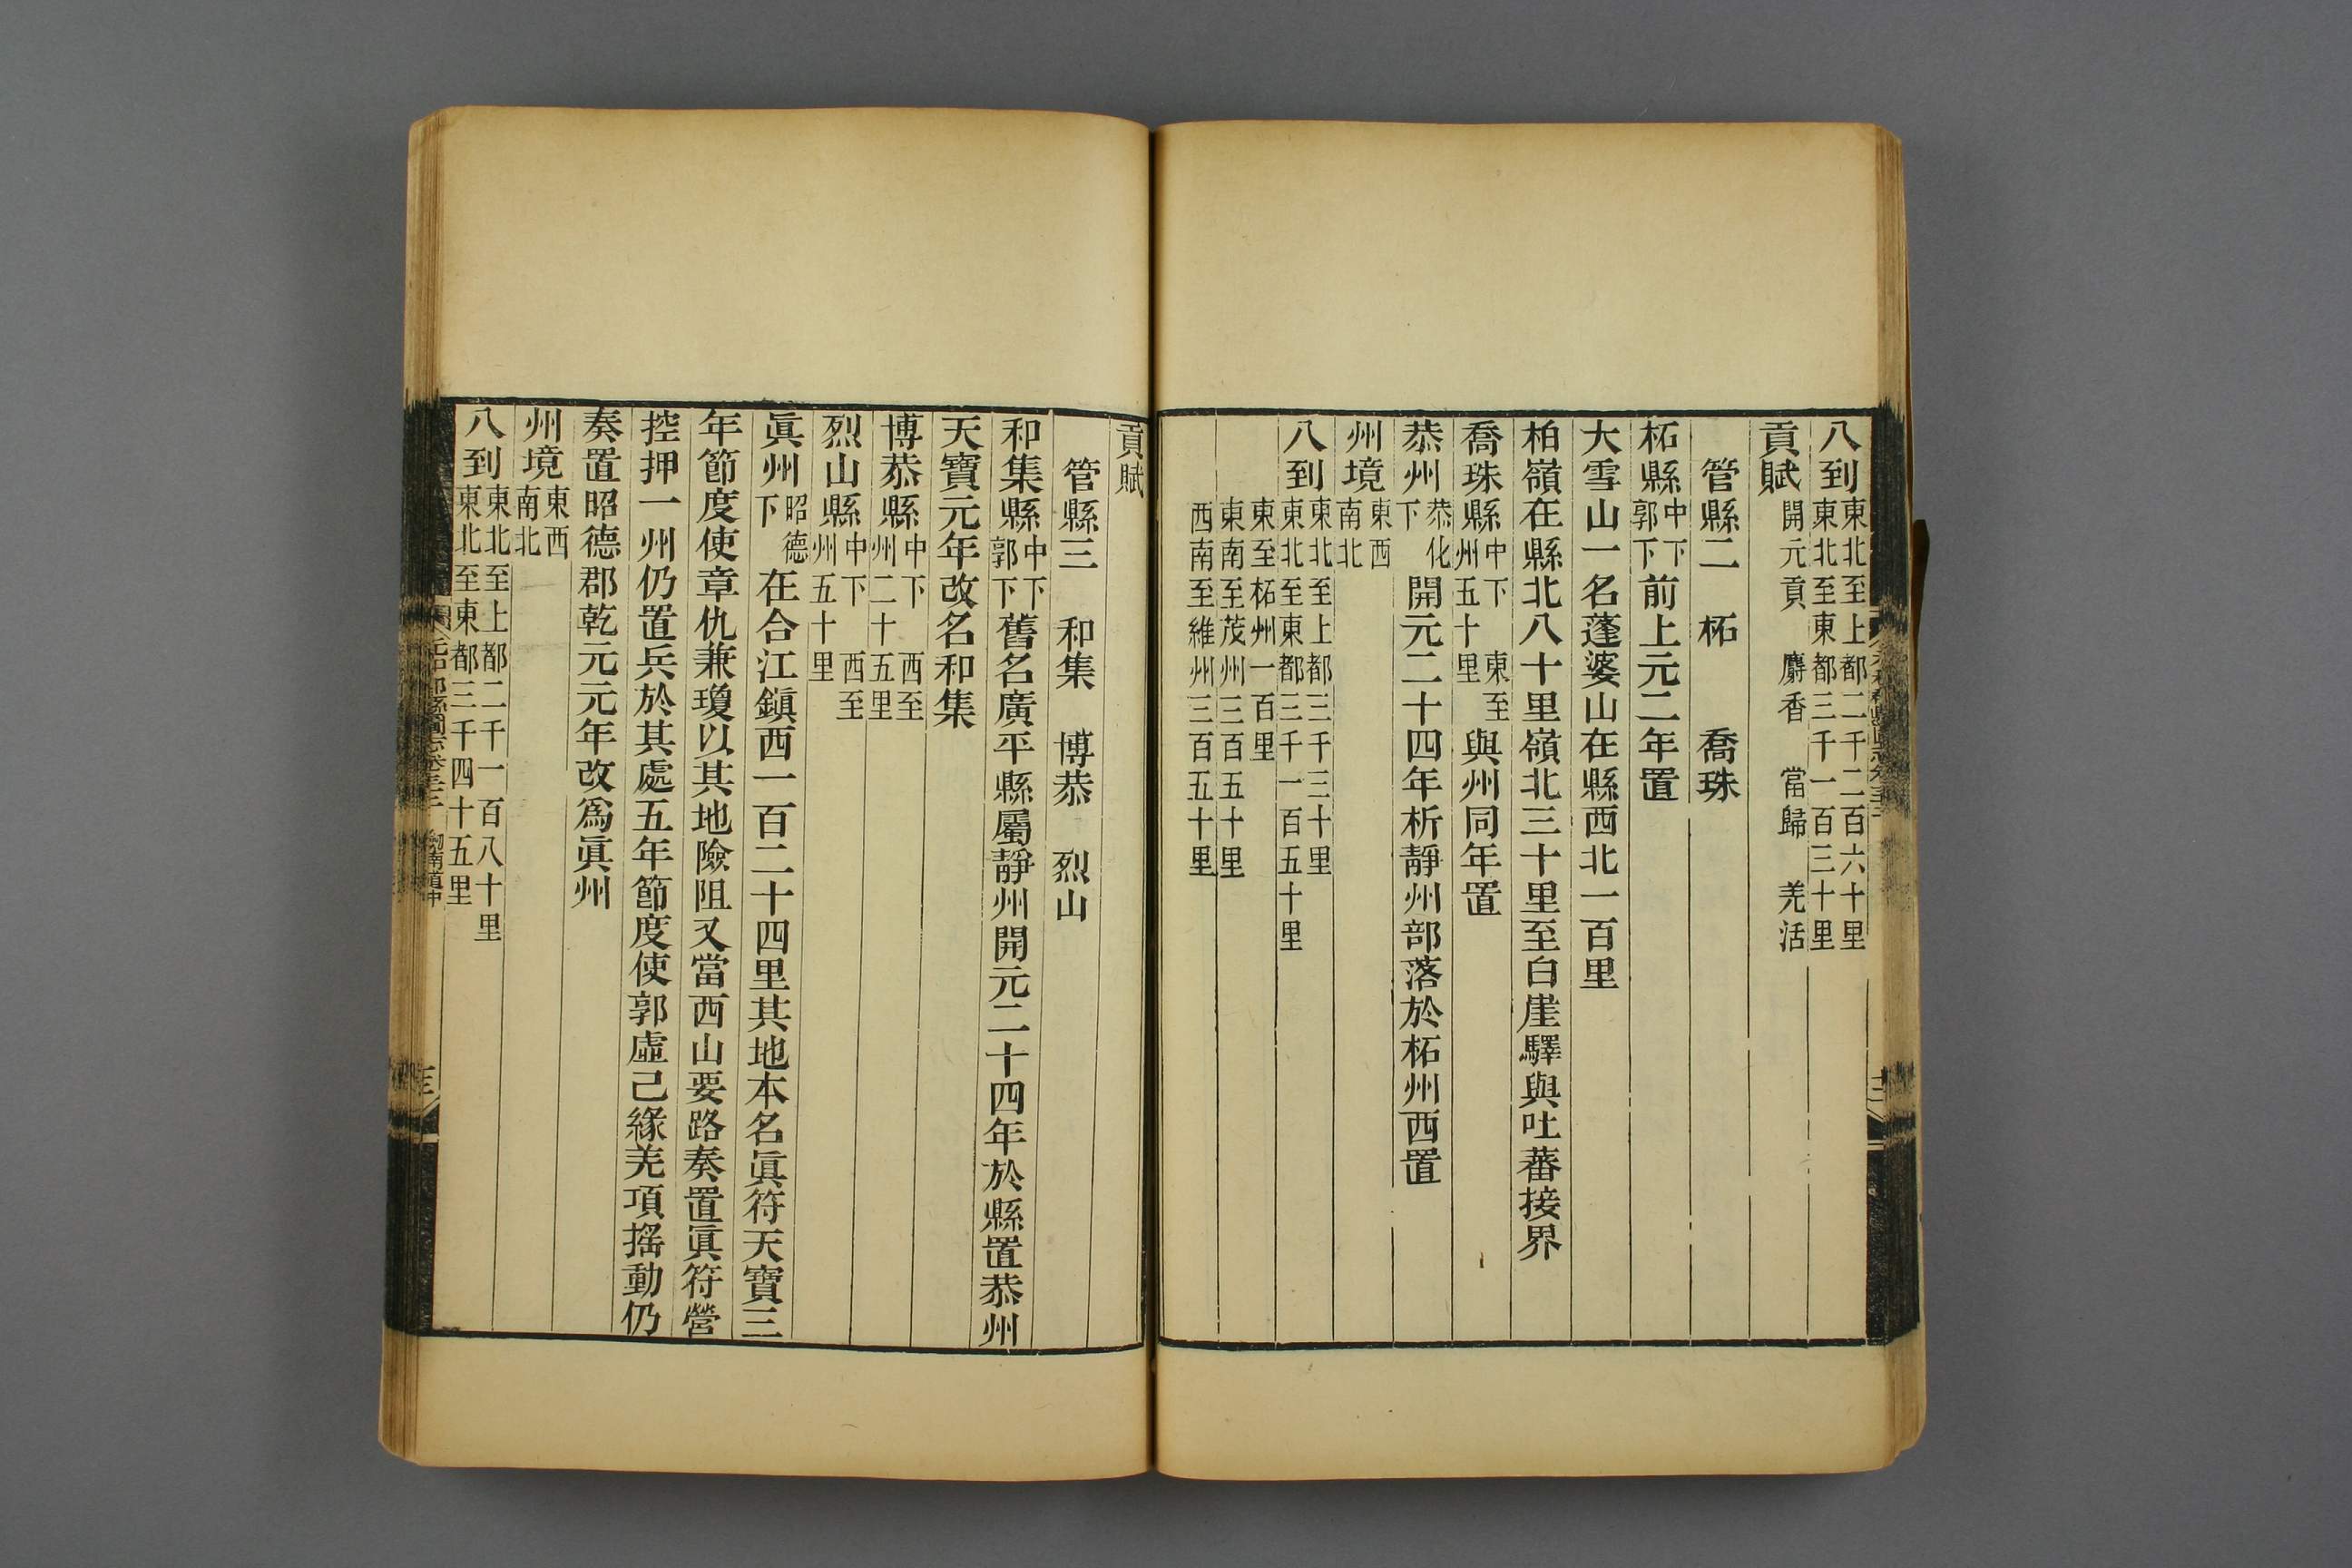 八到東北至上都二千二百六十里東北至東都三千一百三十里
貢賦開元貢 麝香 當歸 羌活
管縣二 柘 喬珠
柘縣中下郭下前上元二年置
大雪山一名蓬婆山在縣西北一百里
柏嶺在縣北八十里嶺北三十里至白崖驛與吐蕃接界
喬珠縣中下 東至州五十里與州同年置
恭州恭化下開元二十四年析靜州部落於柘州西置
州境東西南北
八到東北至上都三千三十里東北至東都三千一百五十里
東至柘州一百里東南至茂州三百五十里
西南至維州三百五十里
貢賦
管縣三 和集 博恭 烈山
和集縣中下郭下舊名廣平縣屬靜州開元二十四年於縣置恭州
天寶元年改名和集
博恭縣中下 西至州二十五里
烈山縣中下 西至州五十里
眞州昭德下在合江鎭西一百二十四里其地本名眞符天寶三
年節度使章仇兼瓊以其地險阻又當西山要路奏置眞符營
控押一州仍置兵於其處五年節度使郭虛己緣羌項搖動仍
奏置昭德郡乾元元年改爲眞州
州境東西南北
八到東北至上都二千一百八十里東北至東都三千四十五里
劍南道中